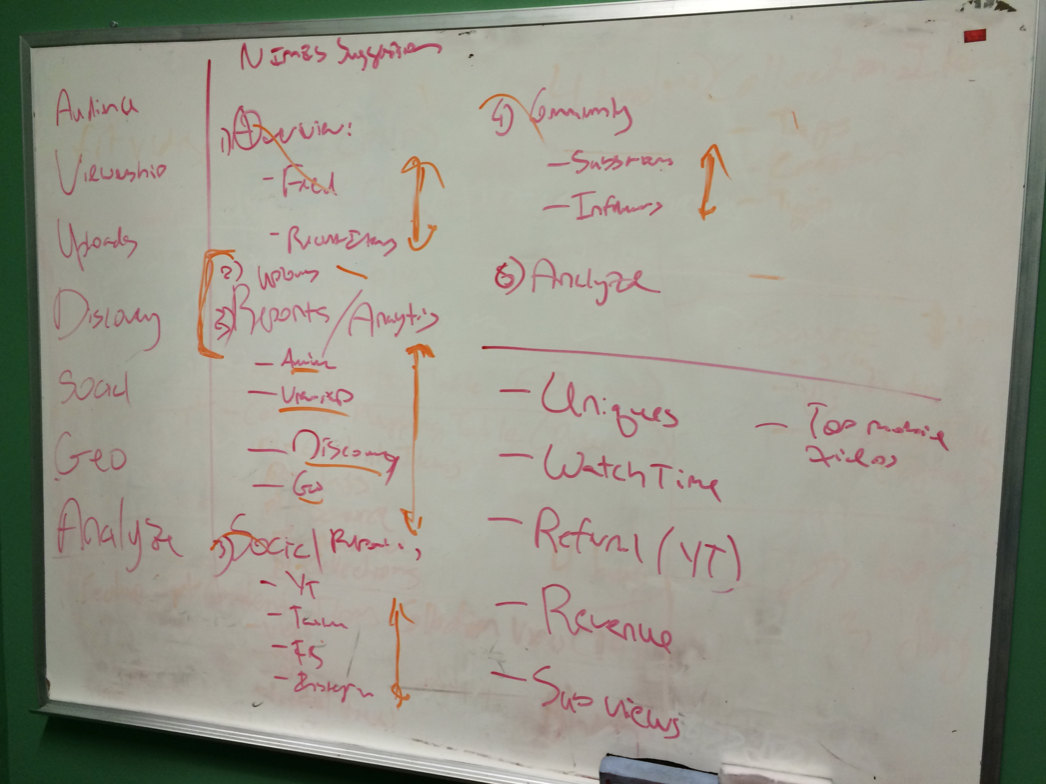 Audience
Viewership
Uploads
Discovery
Social
Geo
Analyze
Suggestions
1) Overview:
- Feed
2) Uploads
3) Reports / Analytics
- Viewership
- Discovery
- Geo
Social /
- YT
- FB
4) Community
- Subscribers
- Influencers
Analyze
- Uniques
- Watch Time
- Referral (YT)
- Revenue
- Sub views
- Top